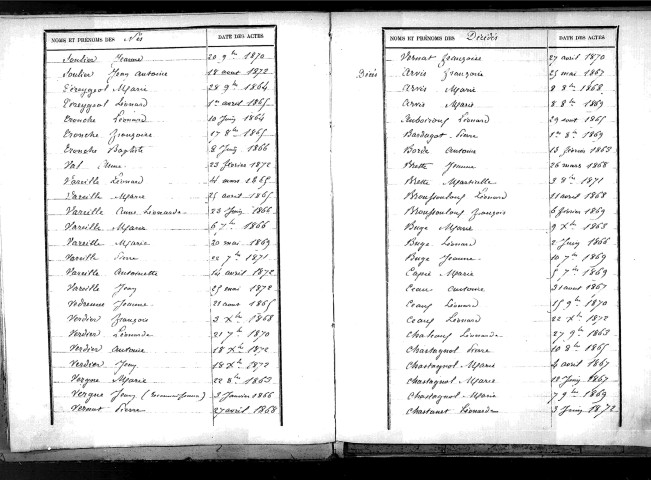 NOMS ET PRÉNOMS DES Nés DATE DES ACTES
Soulier Jeanne 20 9bre 1870
Soulier Jean Antoine 18 aout 1872
Treyggeol Marie 28 9bre 1864
Treyggeol Léonard 1er avril 1865
Tronche Léonard 10 Juin 1864
Tronche Françoise 17 8bre 1865
Tronche Baptiste 8 Juin 1866
Val 23 février 1872
Vareille Léonard 4 mars 1865
Vareille Marie 25 avril 1865
Vareille Anne Léonarde 23 Juin 1866
Vareille Marie 6 7bre 1866
Vareille Marie 20 mai 1869
Vareille Pierre 22 7bre 1871
Vareille Antoinette 14 avril 1872
Vareille Jean 25 mai 1872
Vedrenne Jeanne 21 aout 1865
Verdier François 3 Xbre 1868
Verdier Léonarde 21 7bre 1870
Verdier Antoine 18 Xbre 1872
Verdier Jean 18 Xbre 1872
Vergne Marie 22 8bre 1863
Vergne Jean 3 Janvier 1866
Vernat Pierre 27 avril 1868
NOMS ET PRÉNOMS DES Décédés DATE DES ACTES
Vernat Françoise 27 avril 1870
Arvis Françoise 25 mai 1867
Arvis Marie 8 8bre 1868
Arvis Marie 8 8bre 1869
Léonard 29 aout 1865
Bardagot Pierre 1er 8bre 1869
Borde Antoine 13 février 1863
Brette Jeanne 26 mars 1868
Brette Martialle 3 8bre 1871
Broussouloux Léonard 11 avril 1868
Broussouloux François 6 février 1869
Buge Marie 9 Xbre 1863
Buge Léonard 2 Juin 1866
Buge Jeanne 10 7bre 1869
Marie 5 7bre 1869
Ceaux Antoine 31 aout 1867
Ceaux Léonard 15 9bre 1870
Ceaux Léonard 22 Xbre 1872
Léonarde 27 9bre 1863
Chastagnol Pierre 10 8bre 1865
Chastagnol Marie 4 avril 1867
Chastagnol Marie Juin 1867
Chastagnol Marie 7 9bre 1869
Chastanet Léonarde 3 Juin 1872